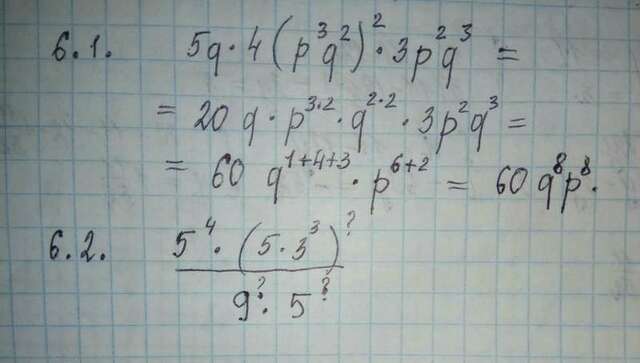 6.1. 5q·4(p³q²)²·3p²q³ =
= 20 q·p³˙²·q²˙²·3p²q³ =
= 60 q¹⁺⁴⁺³·p⁶⁺² = 60 q⁸p⁸.
6.2. 5⁴·(5·3³)^?
9^?·5^?